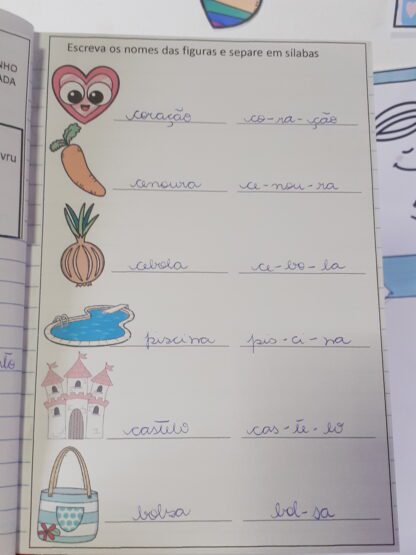 NHO
ADA
vru
Escreva os nomes das figuras e separe em silabas
coração co-ra-ção
cenoura ce-nou-ra
cebola ce-bo-la
piscina pis-ci-na
castelo cas-te-lo
bolsa bol-sa